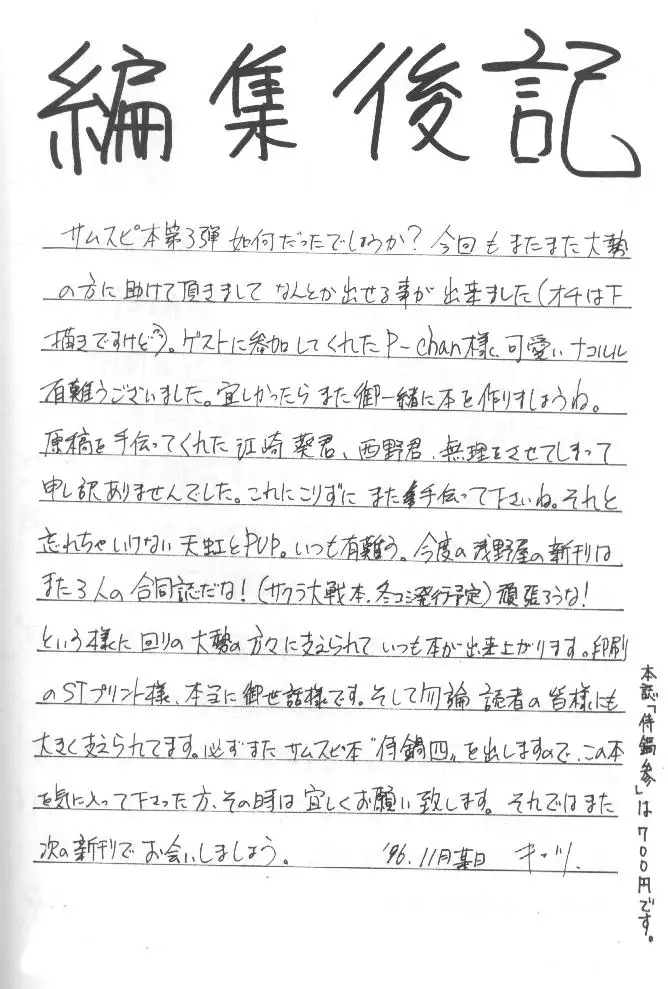 編集後記
サムスピ本第3弾 如何だったでしょうか？ 今回もまたまた大勢
の方に助けて頂きまして なんとか出せる事が出来ました（オチは下
描きですけど）。ゲストに参加してくれたP-chan様、可愛いナコルル
有難うございました。宜しかったらまた御一緒に本を作りましょうね。
原稿を手伝ってくれた江崎葵君、西野君、無理をさせてしまって
申し訳ありませんでした。これにこりずにまた手伝って下さいね。それと
忘れちゃいけない天虹とPUP。いつも有難う。今度の浅野屋の新刊は
また3人の合同誌だな！（サクラ大戦本、冬コミ発行予定）頑張ろうな！
という様に回りの大勢の方々に支えられていつも本が出来上がります。印刷
のSTプリント様、本当に御世話様です。そして勿論読者の皆様にも
大きく支えられてます。必ずまたサムスピ本“侍鍋四„を出しますので、この本
を気に入って下さった方、その時は宜しくお願い致します。それではまた
次の新刊でお会いしましょう。 '96.11月某日 キッツ.
本誌「侍鍋参」は700円です。